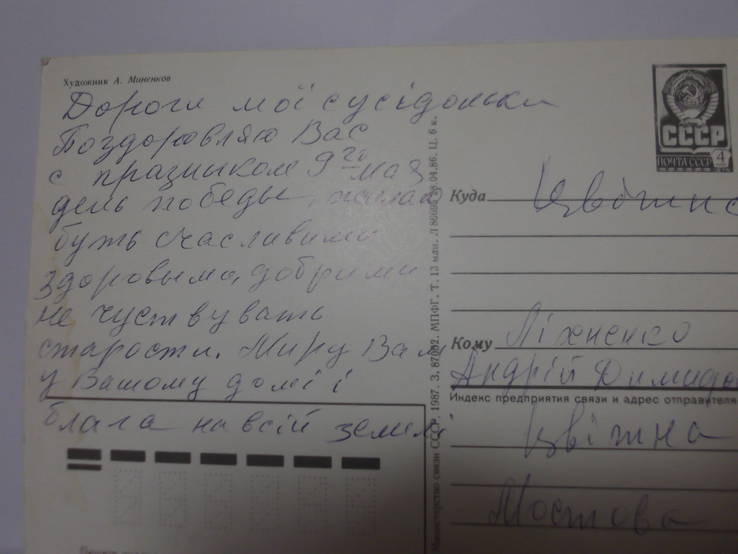 Художник А. Миненков
Дорогі мої сусідоньки
Поздоровляю Вас
с празником 9го мая
день победы, желаю
буть счасливими
здоровыма, добрими
не чуствувать
старости. Миру Вам
у Вашому домі і
блага на всій землі
СССР
ПОЧТА СССР 4
Куда Цвітна
Кому Ліхненко
Андрій Димидо
Индекс предприятия связи и адрес отправителя
Цвітна
Мостова
Министерство связи СССР. 1987. З. 87092. МПФГ. Т. 13 млн. Л 04.86. Ц. 6 к.